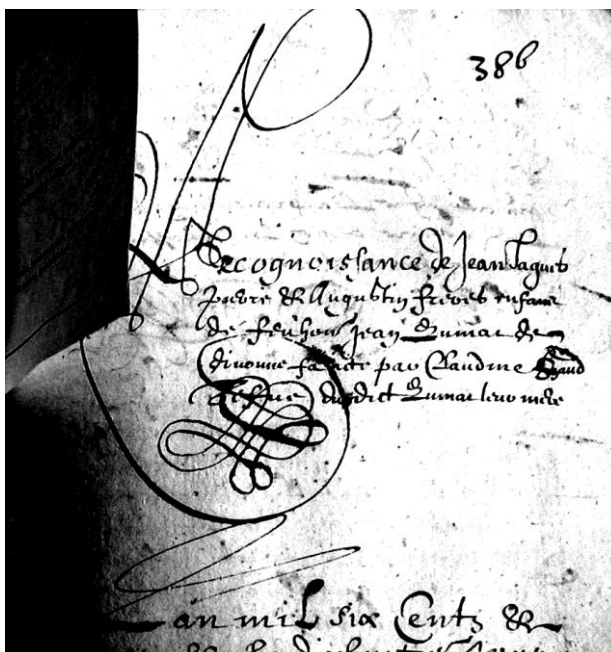 386
Recognoissance de Jean Jaques
pierre & Augustin freres enfans
de feu hon Jean Dumar de
divonne faicte par Claudine
vefve dudict Dumar leur mere
an mil six Cents &